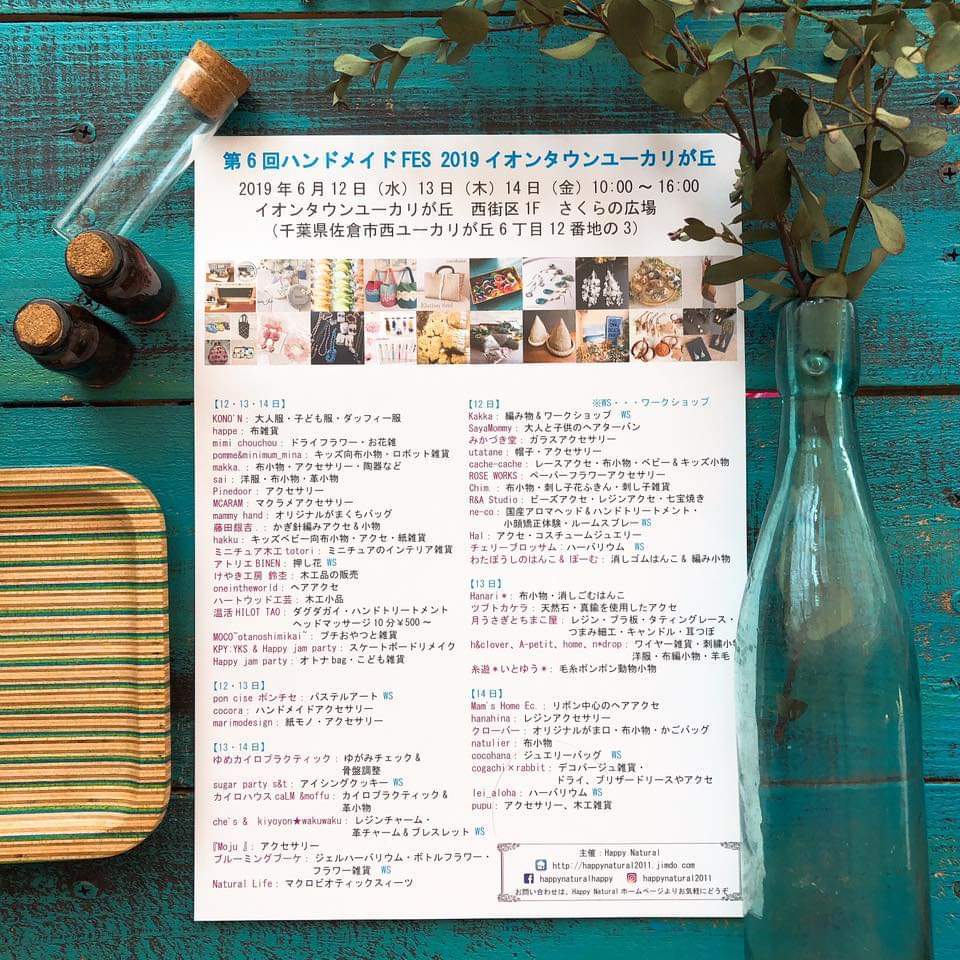 第6回ハンドメイドFES 2019 イオンタウンユーカリが丘
2019年6月12日（水）13日（木）14日（金）10:00～16:00
イオンタウンユーカリが丘 西街区1F さくらの広場
（千葉県佐倉市西ユーカリが丘6丁目12番地の3）
【12・13・14日】
KONO'N： 大人服・子ども服・ダッフィー服
happe： 布雑貨
mimi chouchou： ドライフラワー・お花雑
pomme&minimum_mina： キッズ向布小物・ロボット雑貨
makka.： 布小物・アクセサリー・陶器など
sai： 洋服・布小物・革小物
Pinedoor： アクセサリー
MCARAM： マクラメアクセサリー
mammy hand： オリジナルがまくちバッグ
藤田銀吉.： かぎ針編みアクセ&小物
hakku： キッズベビー向布小物・アクセ・紙雑貨
ミニチュア木工totori： ミニチュアのインテリア雑貨
アトリエBINEN： 押し花 WS
けやき工房 鈴歪： 木工品の販売
oneintheworld： ヘアアクセ
ハートウッド工芸： 木工小品
温活HILOT TAO： ダグダガイ・ハンドトリートメント
ヘッドマッサージ10分¥500～
MOCO~otanoshimikai~ プチおやつと雑貨
KPY:YKS & Happy jam party： スケートボードリメイク
Happy jam party： オトナbag・こども雑貨
【12・13日】
pon cise ポンチセ： パステルアート WS
cocora： ハンドメイドアクセサリー
marimodesign： 紙モノ・アクセサリー
【13・14日】
ゆめカイロプラクティック： ゆがみチェック&
骨盤調整
sugar party s&t： アイシングクッキー WS
カイロハウスcaLM &moffu： カイロプラクティック&
革小物
che's & kiyoyon★wakuwaku： レジンチャーム・
革チャーム&ブレスレット WS
『Moju 』： アクセサリー
ブルーミングブーケ： ジェルハーバリウム・ボトルフラワー・
フラワー雑貨 WS
Natural Life： マクロビオティックスィーツ
【12日】 ※WS・・・ワークショップ
Kakka： 編み物&ワークショップ WS
SayaMommy： 大人と子供のヘアターバン
みかづき堂： ガラスアクセサリー
utatane： 帽子・アクセサリー
cache-cache： レースアクセ・布小物・ベビー&キッズ小物
ROSE WORKS： ペーパーフラワーアクセサリー
Chim.： 布小物・刺し子花ふきん・刺し子雑貨
R&A Studio： ビーズアクセ・レジンアクセ・七宝焼き
ne-co： 国産アロマヘッド&ハンドトリートメント・
小顔矯正体験・ルームスプレー WS
Hal： アクセ・コスチュームジュエリー
チェリーブロッサム： ハーバリウム WS
わたぼうしのはんこ& ぽーむ： 消しゴムはんこ& 編み小物
【13日】
Hanari＊： 布小物・消しごむはんこ
ツブトカケラ： 天然石・真鍮を使用したアクセ
月うさぎとちまこ屋： レジン・プラ板・タティングレース・
つまみ細工・キャンドル・耳つぼ
h&clover、A-petit、home、n*drop： ワイヤー雑貨・刺繍小
洋服・布編小物・羊毛
糸遊＊いとゆう＊： 毛糸ポンポン動物小物
【14日】
Mam's Home Ec.： リボン中心のヘアアクセ
hanahina： レジンアクセサリー
クローバー： オリジナルがま口・布小物・かごバッグ
natulier： 布小物
cocohana： ジュエリーバッグ WS
cogachi×rabbit： デコパージュ雑貨・
ドライ、ブリザードリースやアクセ
lei_aloha： ハーバリウム WS
pupu： アクセサリー、木工雑貨
主催：Happy Natural
http://happynatural2011.jimdo.com
happynaturalhappy happynatural2011
お問い合わせは、Happy Natural ホームページよりお気軽にどうぞ